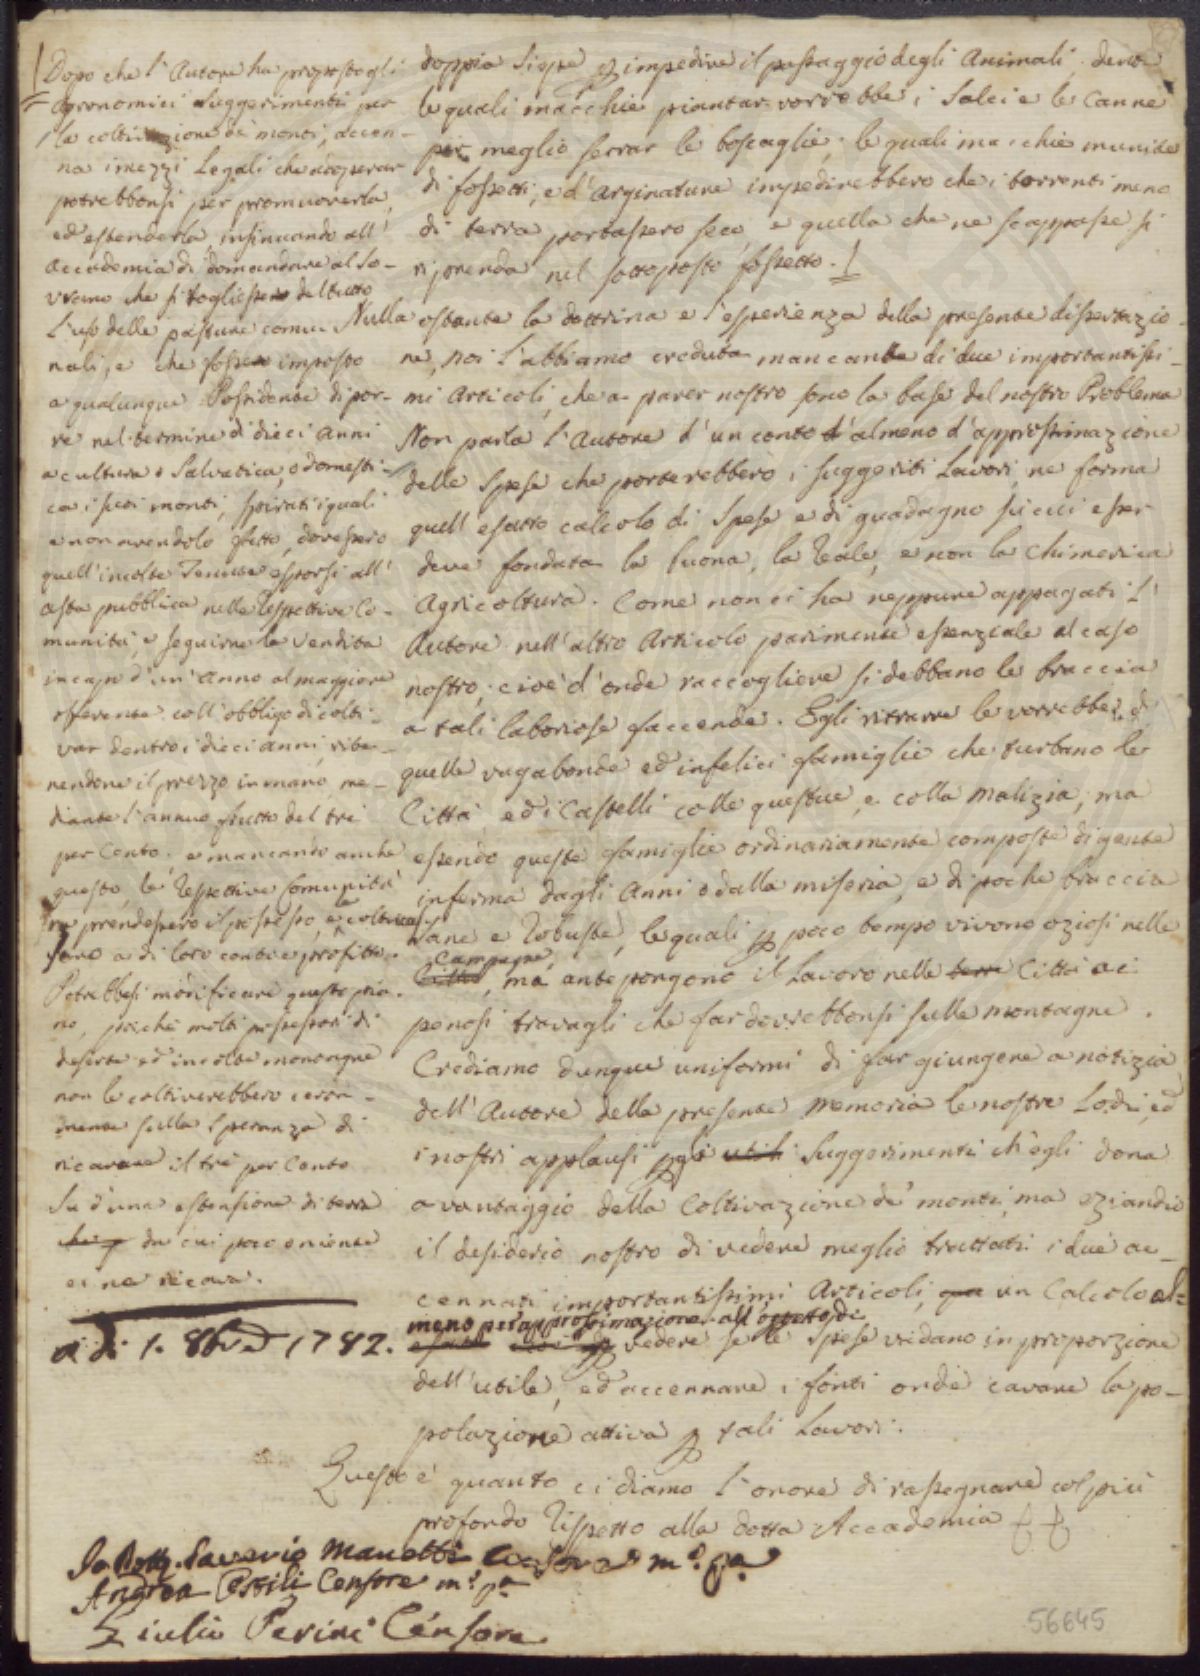 Dopo che l'Autore ha proposto gli
agronomici suggerimenti per
la coltivazione de' monti, accen-
na i mezzi Legali che adoperar
potrebbonsi per promuoverla,
ed estenderla, insinuando all'
Accademia di domandare al So-
vrano che si togliesse del tutto
l'uso delle pasture comu-
nali, e che fosse imposto
a qualunque Possidente di por-
re nel termine di dieci anni
a cultura o Salvatica, o domesti-
ca i suoi monti, spirati i quali
e non avendolo fatto, dovessero
quell'incolte Tenute esporsi all'
asta pubblica nelle respettive Co-
munità, e seguirne la vendita
in capo d'un'anno al maggiore
offerente coll'obbligo di colti-
var dentro i dieci anni, rite-
nendone il prezzo in mano, me-
diante l'annuo frutto del tre
per Cento; e mancando anche
questo, le respettive Comunità
ne prendessero il possesso, e coltivas-
sero a di loro conto e profitto.
Potrebbesi modificare questo pia-
no, poiché molti possessori di
deserte ed incolte montagne
non le coltiverebbero ceron-
mente sulla Speranza di
ricavare il tre per Cento
Su d'una estensione di terra
da cui poco o niente
ci ne ricava.
a dì 1. 8bre 1782.
doppia Siepe p impedire il passaggio degli Animali, dentro
le quali macchie piantar vorrebbe i Salci e le Canne
per meglio serrar le boscaglie; le quali macchie munite
di fossetti, e d'Arginature impedirebbero che i torrenti meno
di terra portassero seco, e quella che ne scappasse si
riprenda nel sottoposto fossetto.
Nulla ostante la dottrina e l'esperienza della presente dissertazio-
ne, noi l'abbiamo creduta mancante di due importantissi-
mi Articoli, che a parer nostro sono la base del nostro Problema
Non parla l'Autore d'un conto d'almeno d'approssimazione
delle Spese che porterebbero i suggeriti Lavori, ne forma
quell'esatto calcolo di Spese e di guadagno su cui esser
deve fondata la buona, la reale, e non la Chimerica
Agricoltura. Come non ci ha neppure appagati l'
Autore nell'altro Articolo parimente essenziale al caso
nostro; cioè d'onde raccogliere si debbano le braccia
a tali laboriose faccende. Egli ritrarre le vorrebbe d
quelle vagabonde ed infelici famiglie che turbano le
Città, ed i Castelli colle questue, e colla malizia; ma
essendo queste famiglie ordinariamente composte di gente
inferma dagli Anni o dalla miseria, e di poche braccia
sane e robuste, le quali p poco tempo vivono oziosi nelle
Campagne
Città, ma antepongono il Lavoro nelle terre Città ai
penosi travagli che far dovrebbonsi sulle montagne.
Crediamo dunque uniformi di far giungere a notizia
dell'Autore della presente Memoria le nostre Lodi, ed
i nostri applausi p gli utili Suggerimenti ch'egli dona
a vantaggio della Coltivazione de' monti, ma eziandio
il desiderio nostro di vedere meglio trattati i due ac-
cennati importantissimi Articoli, un Calcolo al-
meno per approssimazione all'oggetto di
p vedere se le Spese vadano in proporzione
dell'utile, ed accennare i fonti onde cavare la po-
polazione attiva p tali Lavori.
Questo è quanto ci diamo l'onore di rassegnare col più
profondo rispetto alla dotta Accademia
Io Dott. Saverio Manetti Censore m.o pa.
Andrea Pestili Censore m.o pa.
Giulio Perini Censore.
56645